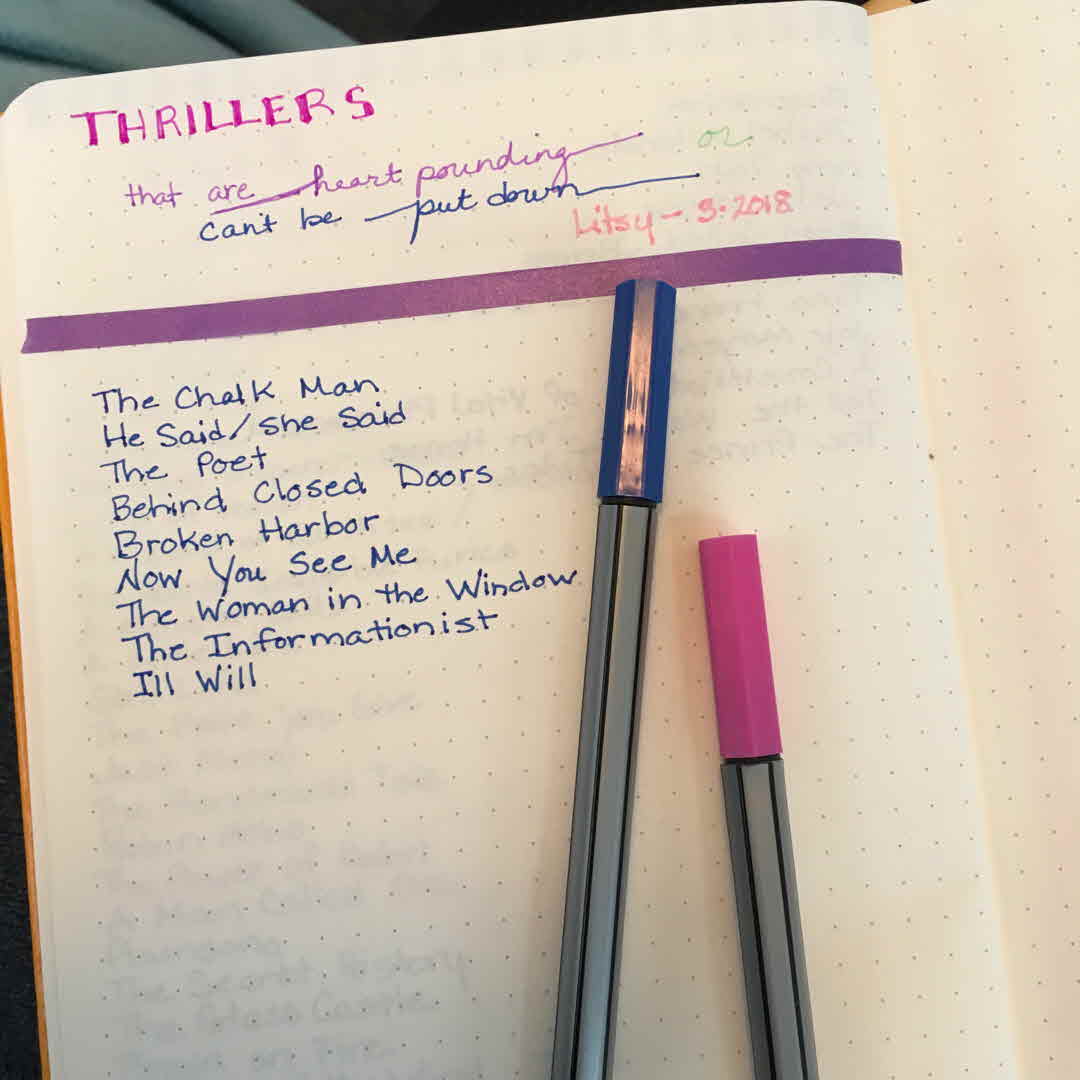 THRILLERS
that are heart pounding or
can't be put down
Litsy - 3.2018
The Chalk Man
He Said/She Said
The Poet
Behind Closed Doors
Broken Harbor
Now You See Me
The Woman in the Window
The Informationist
Ill Will